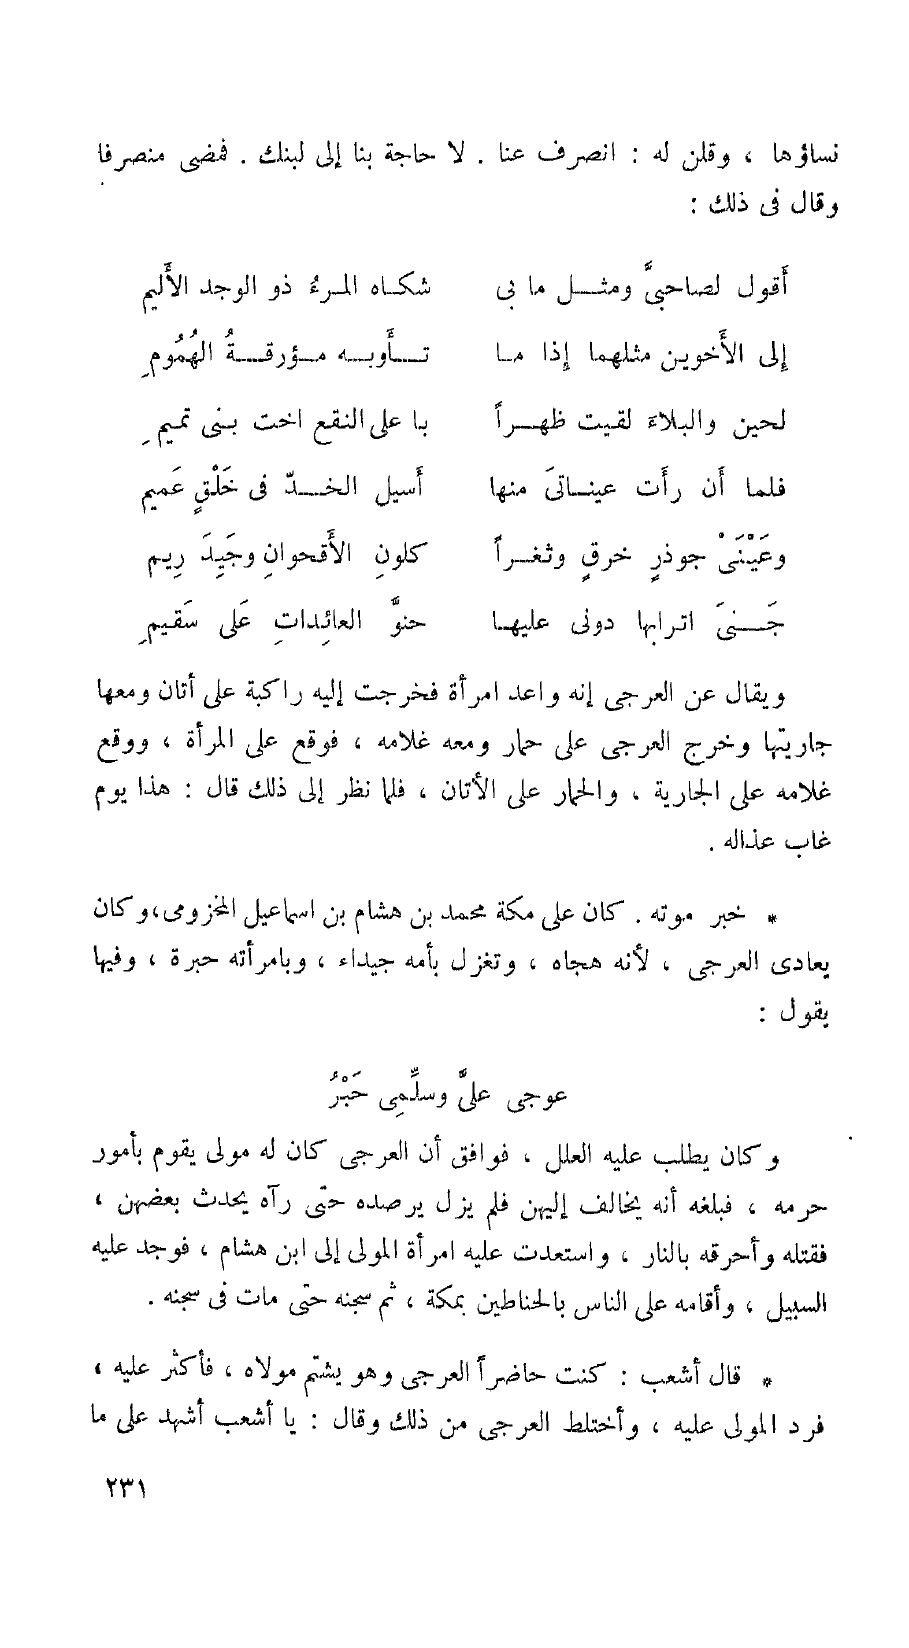 نساؤها ، وقلن له : انصرف عنا . لا حاجة بنا إلى لبنك . فمضى منصرفا
وقال فى ذلك :
أَقول لصاحبىَّ ومثـــل ما بى شكـاه المـرءُ ذو الوجد الأَليم
إلى الأَخوين مثلهما إذا مـا تـــأَوبـه مـؤرقـــةُ الهُمُومِ
لحين والبلاءَ لقيت ظهـــراً با على النقع اخت بـنى تميمِ
فلما أَن رأَت عينـــاىَ منها أَسيل الخـــدّ فى خَلْقٍ عَميم
وعَيْنَىْ جوذرٍ خرقٍ وثغـــراً كلونِ الأَقحوانِ وجَيِدَ رِيم
جَـــنىَ اترابها دونى عليهـا حنوَّ العائِداتِ عَلى سَقيمِ
ويقال عن العرجى إنه واعد امرأة فخرجت إليه راكبة على أتان ومعها
جاريتها وخرج العرجى على حمار ومعه غلامه ، فوقع على المرأة ، ووقع
غلامه على الجارية ، والحمار على الأتان ، فلما نظر إلى ذلك قال : هذا يوم
غاب عذاله .
* خبر موته . كان على مكة محمد بن هشام بن اسماعيل المخزومى،وكان
يعادى العرجى ، لأنه هجاه ، وتغزل بأمه جيداء ، وبامرأته حبرة ، وفيها
يقول :
عوجى علىَّ وسلِّمِى حَبْرُ
وكان يطلب عليه العلل ، فوافق أن العرجى كان له مولى يقوم بأمور
حرمه ، فبلغه أنه يخالف إليهن فلم يزل يرصده حتى رآه يحدث بعضهن ،
فقتله وأحرقه بالنار ، واستعدت عليه امرأة المولى إلى ابن هشام ، فوجد عليه
السبيل ، وأقامه على الناس بالحناطين بمكة ، ثم سجنه حتى مات فى سجنه .
* قال أشعب : كنت حاضراً العرجى وهو يشتم مولاه ، فأكثر عليه ،
فرد المولى عليه ، وأختلط العرجى من ذلك وقال : يا أشعب أشهد على ما
٢٣١